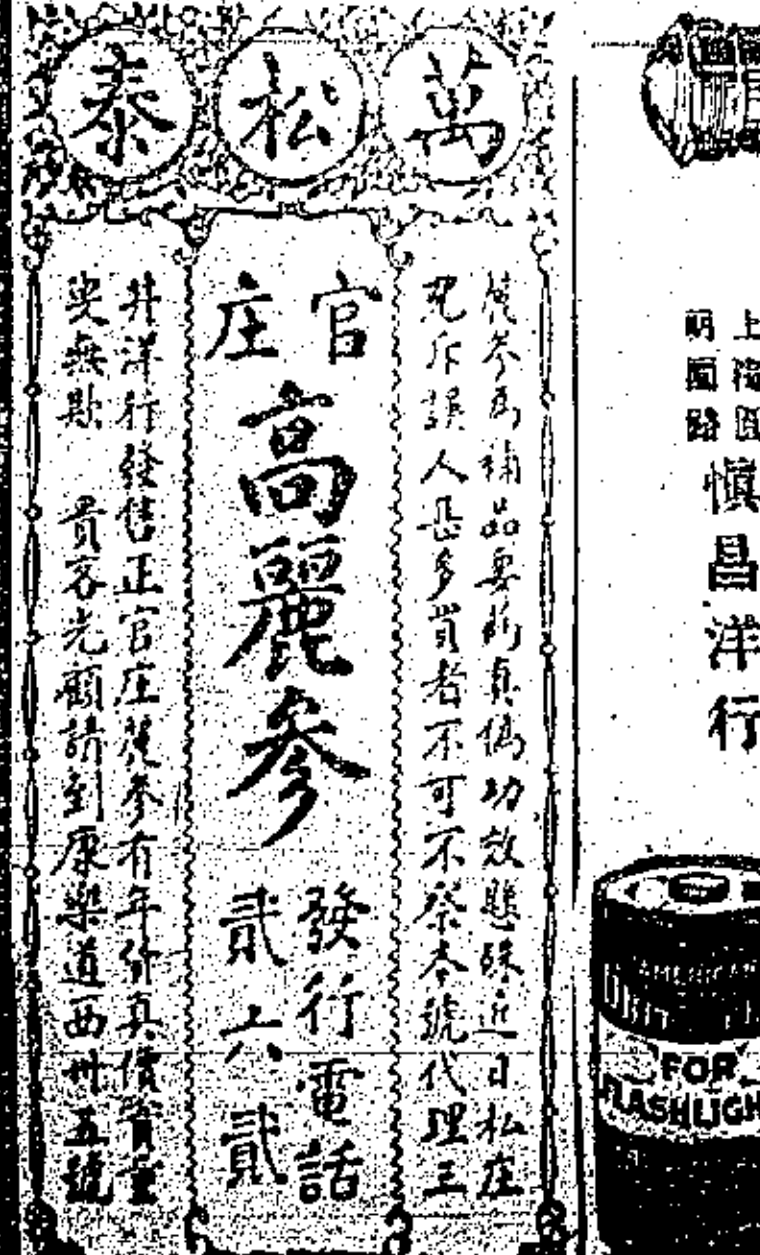 萬松泰
麗參為補品要藥真偽功效懸殊近日私庄
充斥誤人甚多買者不可不察本號代理三
官庄
高麗參
發行電話
貳六貳
井洋行發售正官庄麗參有年貨真價實童
叟無欺 貴客光顧請到康樂道西卅五號
上海圓
明園路
慎昌洋行
AMERICAN
UNIT
FOR
FLASHLIGH